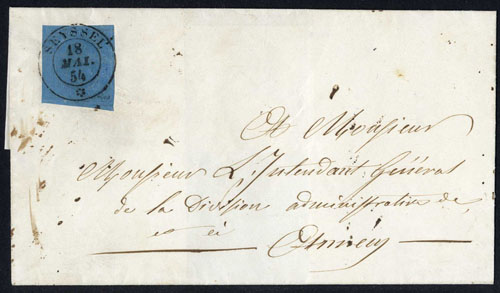 SEYSSEL
18
MAI.
54
A Monsieur
Monsieur L'Intendant Général
de la Division administrative de
et à
Annecy